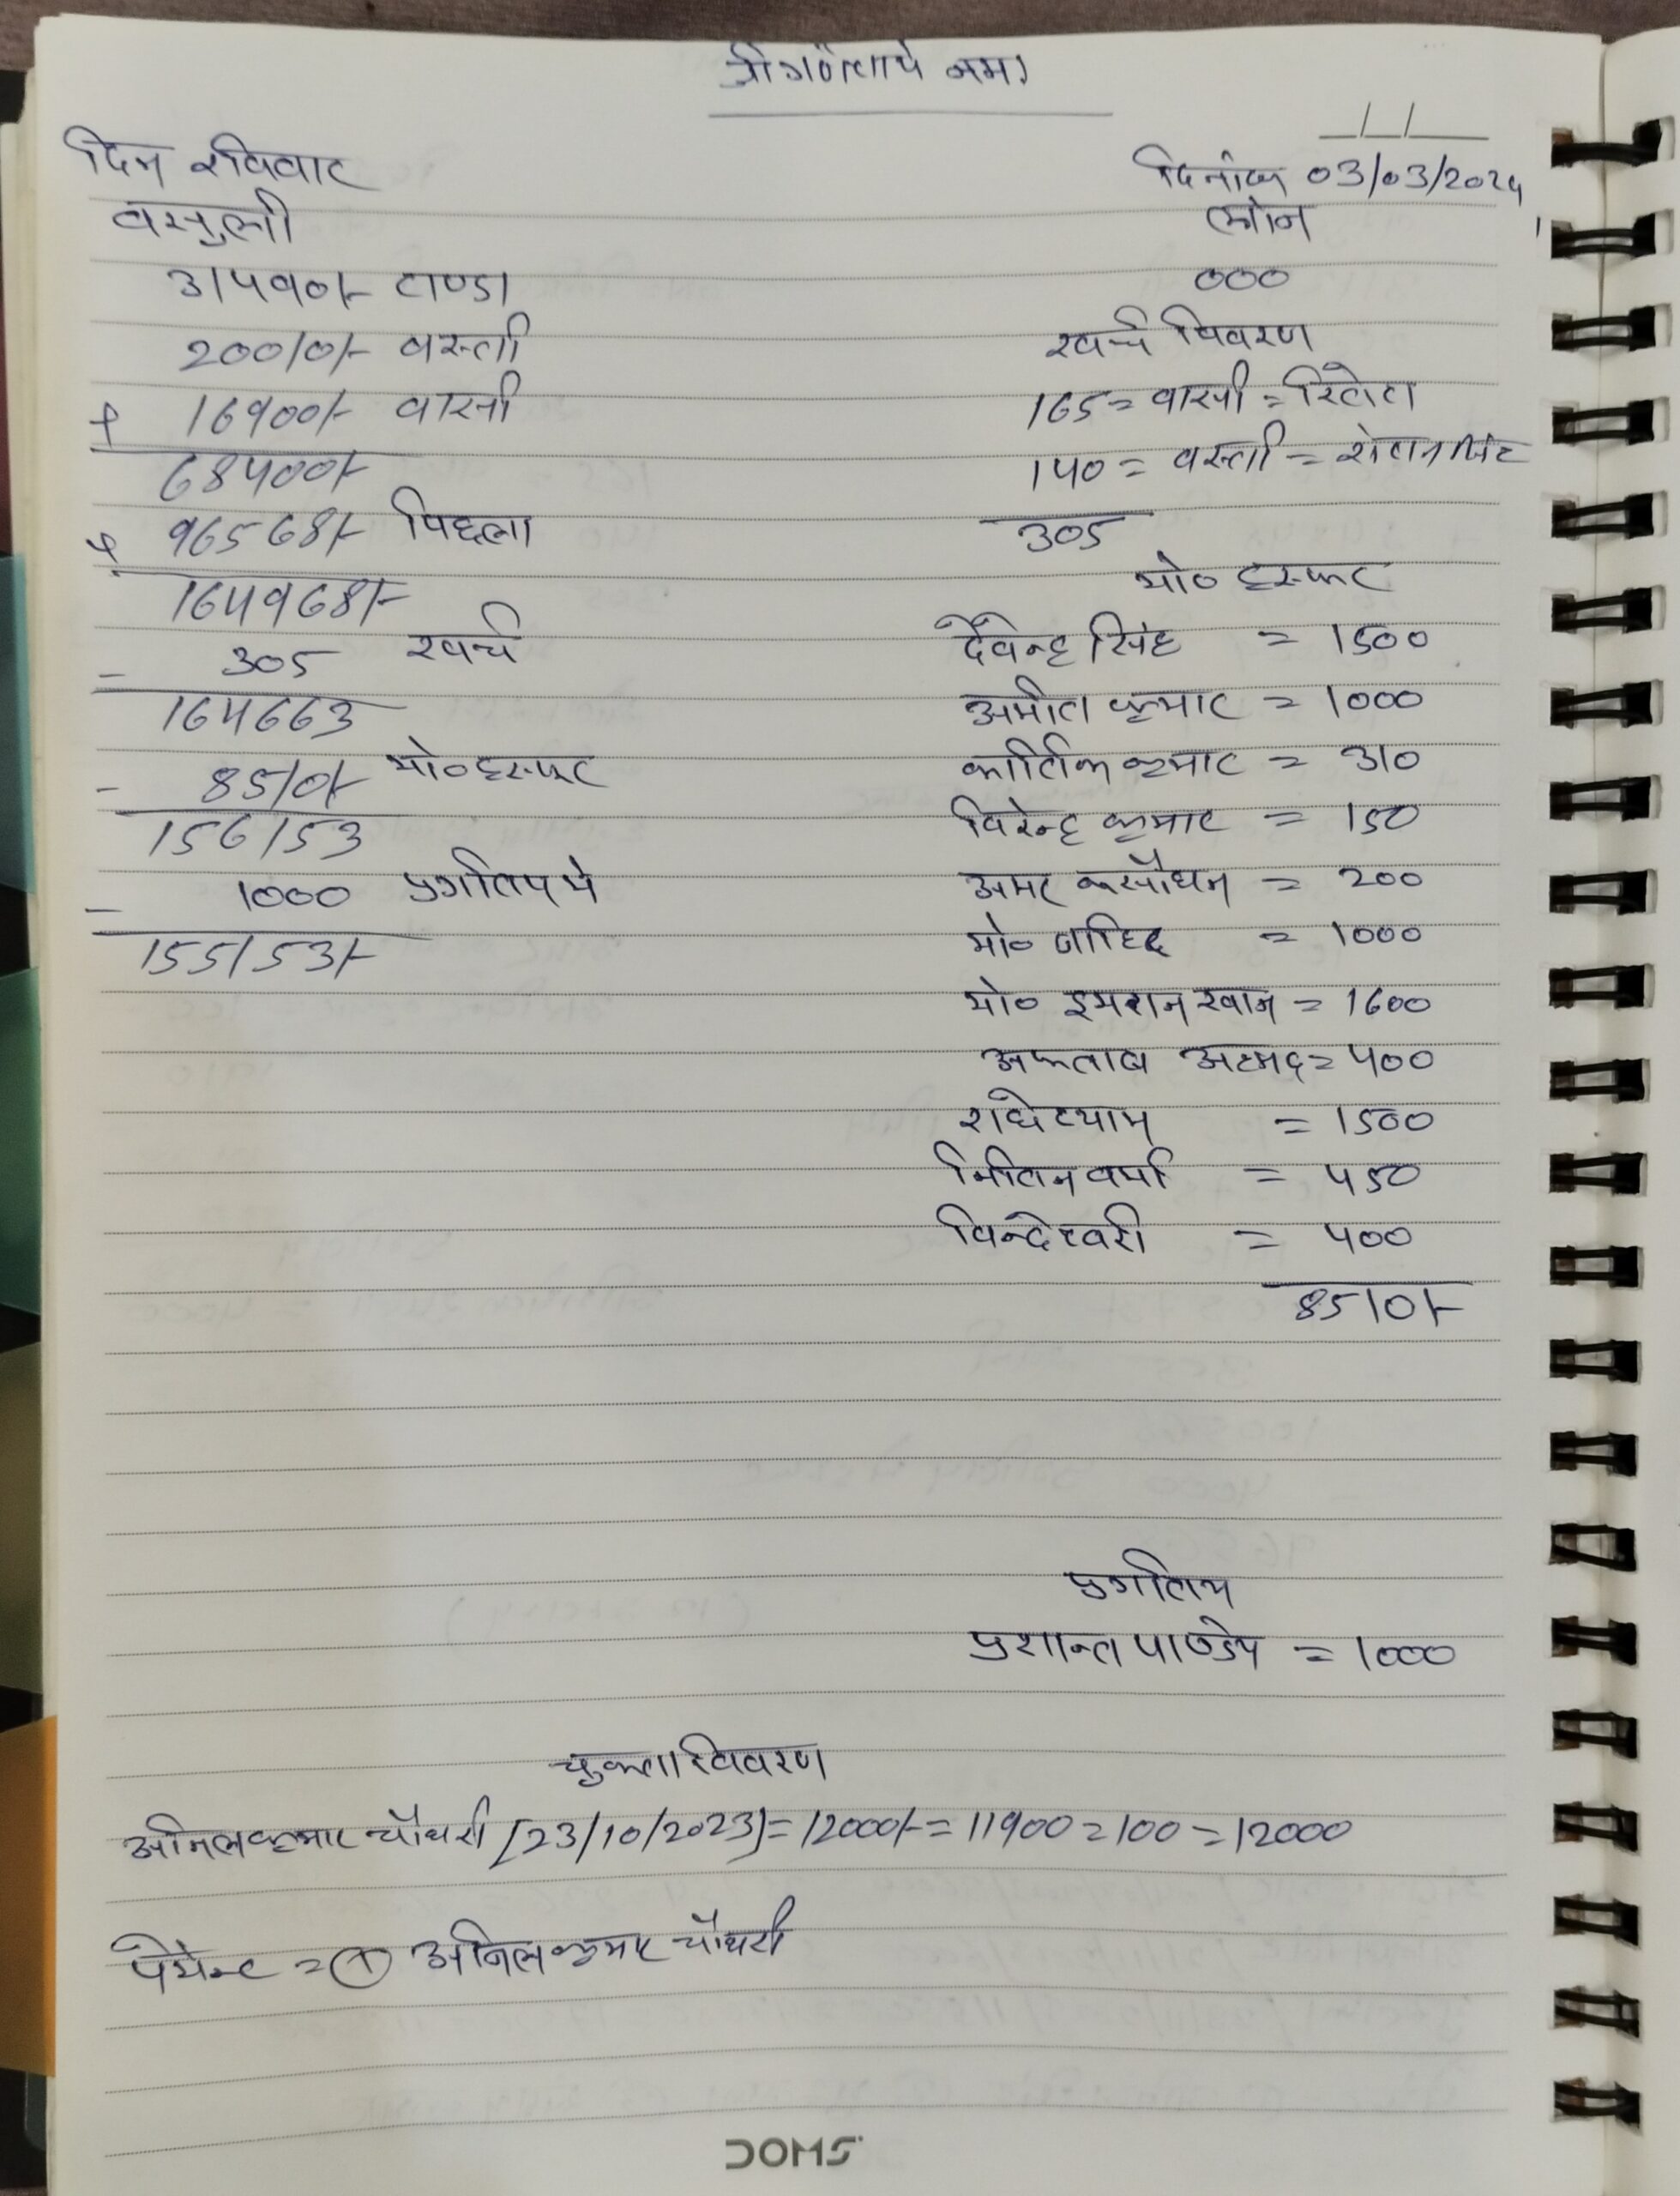 श्री गणेशाये नमः
दिन रविवार
वसुली
31490/- टाण्डा
20010/- वस्ती
+ 16900/- वास्सी
68400/-
+ 96568/- पिछला
164968/-
- 305 खर्च
164663
- 8510/- मो० ट्रान्सफर
156153
- 1000 प्रगतिपथे
155153/-
दिनांक 03/03/2024
लोन
000
खर्च विवरण
165 = वास्सी =
140 = वस्ती = रोशन सिंह
305
मो० ट्रान्सफर
देवेन्द्र सिंह = 1500
अमीत कुमार = 1000
कार्तिक कुमार = 310
विरेन्द्र कुमार = 150
अमर कसौधन = 200
मो० जाहिद = 1000
मो० इमरान खान = 1600
अफताब अहमद = 400
राधेश्याम = 1500
नितिन वर्मा = 450
विन्देश्वरी = 400
8510/-
प्रगतिपथ
प्रशान्त पाण्डेय = 1000
चुकता विवरण
अनिल कुमार चौधरी [23/10/2023] = 12000/- = 11900 = 100 = 12000
पेमेन्ट = ① अनिल कुमार चौधरी
DOMS